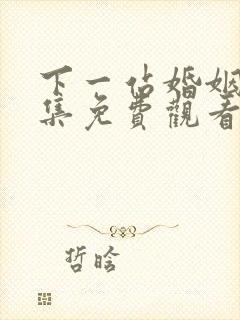 下一站婚姻
集免費觀看
哲晗